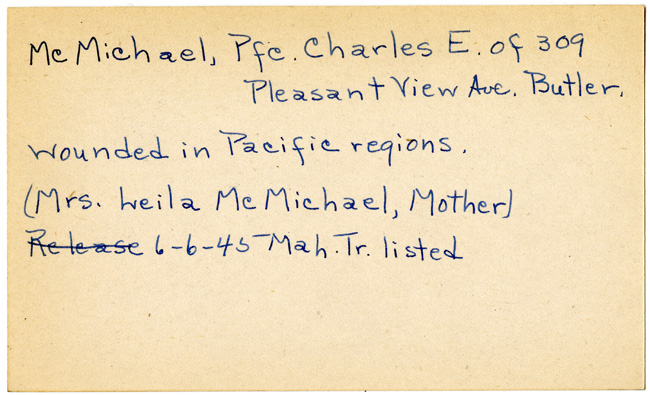 McMichael, Pfc. Charles E. of 309
Pleasant View Ave. Butler.
wounded in Pacific regions.
(Mrs. Leila McMichael, Mother)
Release 6-6-45 Mah. Tr. listed